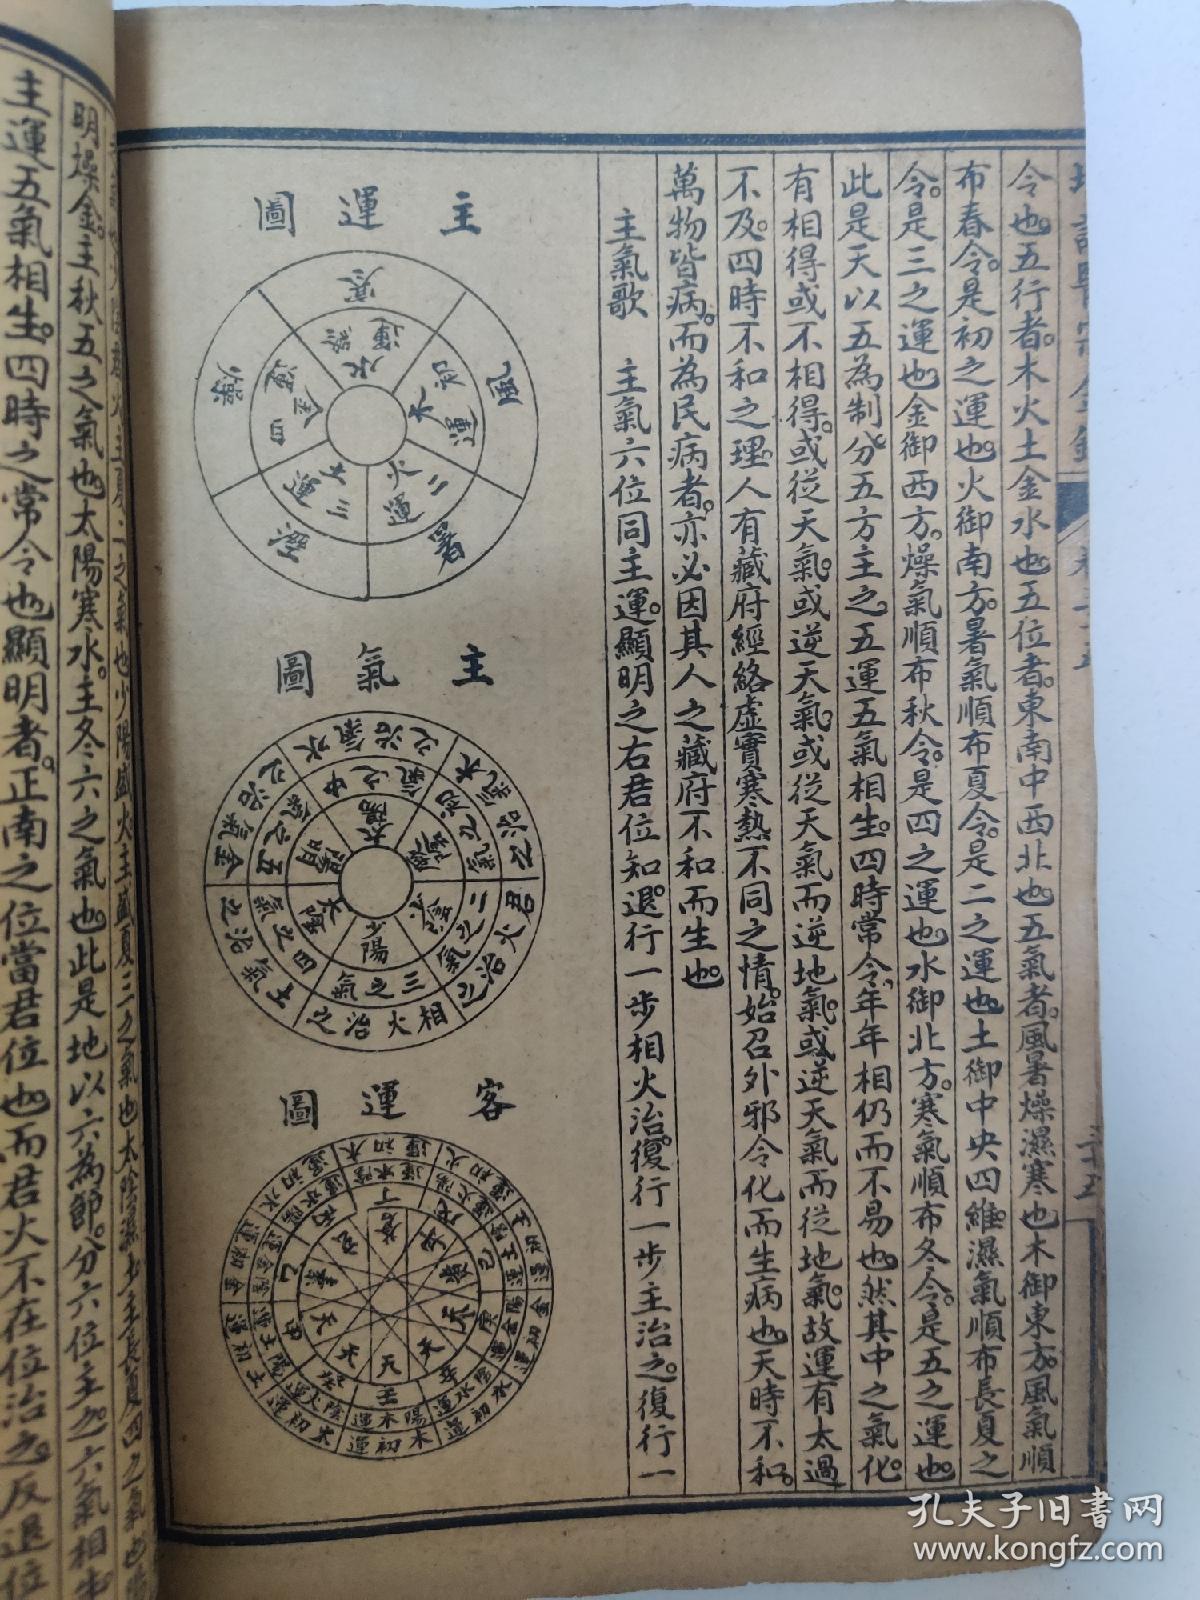 令也。五行者。木火土金水也。五位者。東南中西北也。五氣者。風暑燥濕寒也。木御東方。風氣順
布春令。是初之運也。火御南方。暑氣順布夏令。是二之運也。土御中央四維。濕氣順布長夏之
令。是三之運也。金御西方。燥氣順布秋令。是四之運也。水御北方。寒氣順布冬令。是五之運也。
此是天以五為制。分五方主之。五運五氣相生。四時常令。年年相仍而不易也。然其中之氣化。
有相得或不相得。或從天氣。或逆天氣。或從天氣而逆地氣。或逆天氣而從地氣。故運有太過
不及。四時不和之理。人有藏府經絡虛實寒熱不同之情。始召外邪令化而生病也。天時不和。
萬物皆病。而為民病者。亦必因其人之藏府不和而生也。
主氣歌　主氣六位同主運。顯明之右君位知。退行一步相火治。復行一步主治之。復行一
主運圖
寒 風 暑 濕 燥
水運終 木運初 火運二 土運三 金運四
主氣圖
水氣治之 木氣治之 君火治之 相火治之 土氣治之 金氣治之
初之氣 二之氣 三之氣 四之氣 五之氣
太陽 少陰 少陽 太陰 陽明
客運圖
主運五氣相生。四時之常令也。顯明者。正南之位當君位也。而君火不在位治之。反退位
明燥金。主秋五之氣也。太陽寒水。主冬六之氣也。此是地以六為節。分六位主之。六氣相生
孔夫子旧書网
www.kongfz.com